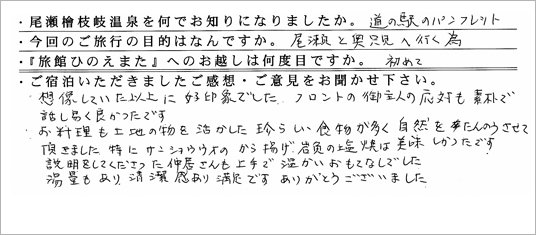 ・尾瀬檜枝岐温泉を何でお知りになりましたか。 道の駅のパンフレット
・今回のご旅行の目的はなんですか。 尾瀬と奥只見へ行く為
・『旅館ひのえまた』へのお越しは何度目ですか。 初めて
・ご宿泊いただきましたご感想・ご意見をお聞かせ下さい。
・想像していた以上に好印象でした。フロントの御主人の応対も素朴で
話し易く良かったです
・お料理も土地の物を活かした珍らしい食物が多く自然をたんのうさせて
頂きました 特にサンショウウオのから揚げ、岩魚の塩焼は美味しかったです
説明をしてくださった仲居さんも上手で温かいおもてなしでした
湯量もあり、清潔感あり満足です ありがとうございました